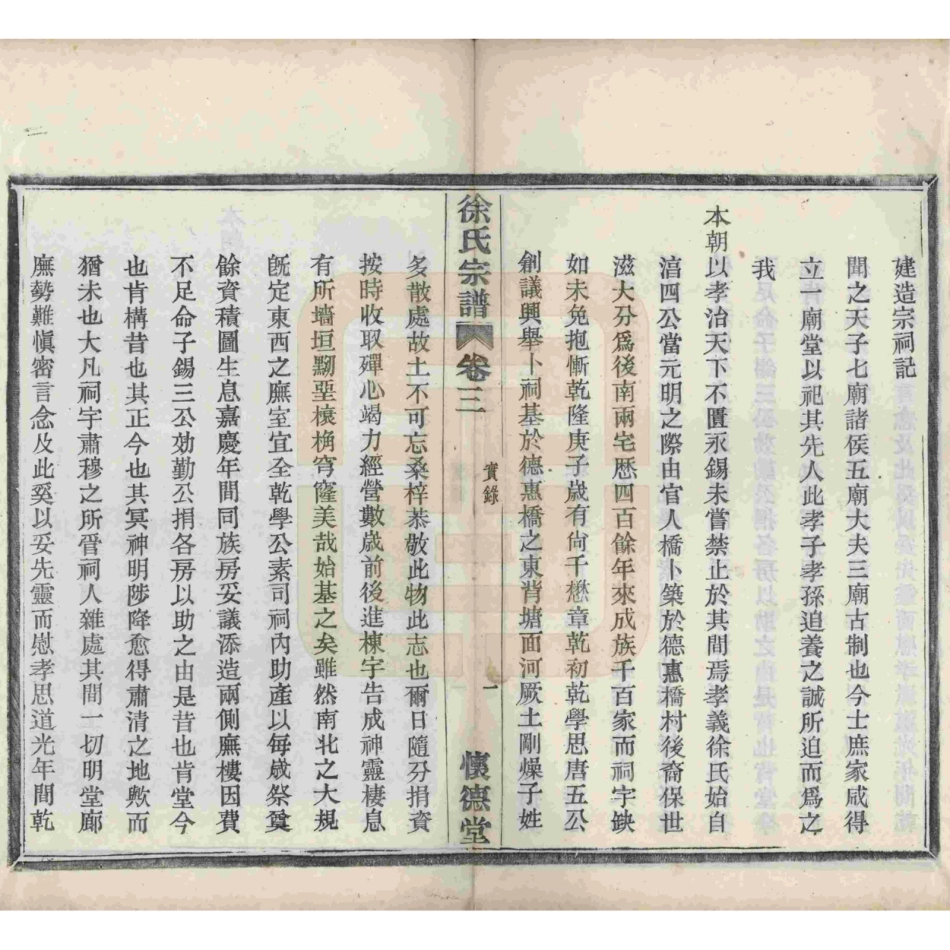 建造宗祠記
聞之天子七廟諸侯五廟大夫三廟古制也今士庶家咸得
立廟堂以祀其先人此孝子孝孫追養之誠所迫而爲之
我
本朝以孝治天下不匱永錫未嘗禁止於其間焉孝義徐氏始自
涫四公當元明之際由官人橋卜築於德惠橋村後裔保世
滋大分爲後南兩宅歷四百餘年來成族千百家而祠宇缺
如未免抱慚乾隆庚子歲有尙千懋章乾初乾學思唐五公
創議興舉卜祠基於德惠橋之東背塘面河厥土剛燥子姓
徐氏宗譜 卷三 實錄 一 懷德堂
多散處故土不可忘桑梓恭敬此物此志也爾日隨分捐資
按時收取殫心竭力經營數歲前後進棟宇告成神靈棲息
有所墻垣黝堊檁桷穹窿美哉始基之矣雖然南北之大規
旣定東西之廡室宜全乾學公素司祠內助產以每歲祭奠
餘資積圖生息嘉慶年間同族房妥議添造兩側廡樓因費
不足命子錫三公効勤公捐各房以助之由是昔也肯堂今
也肯構昔也其正今也其冥神明陟降愈得肅清之地歟而
猶未也大凡祠宇肅穆之所胥祠人雜處其間一切明堂廊
廡勢難愼密言念及此奚以妥先靈而慰孝思道光年間乾